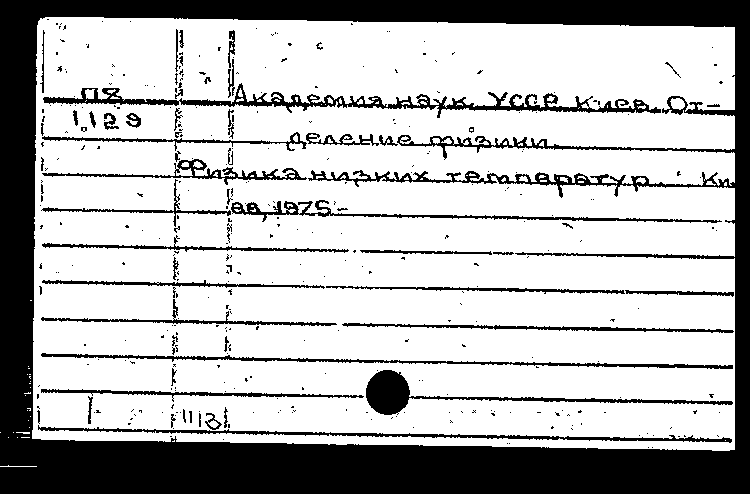 П8
Академия наук УССР Киев. От-
1.129
деление физики.
Физика низких температур. Ки
ев, 1975-
1113